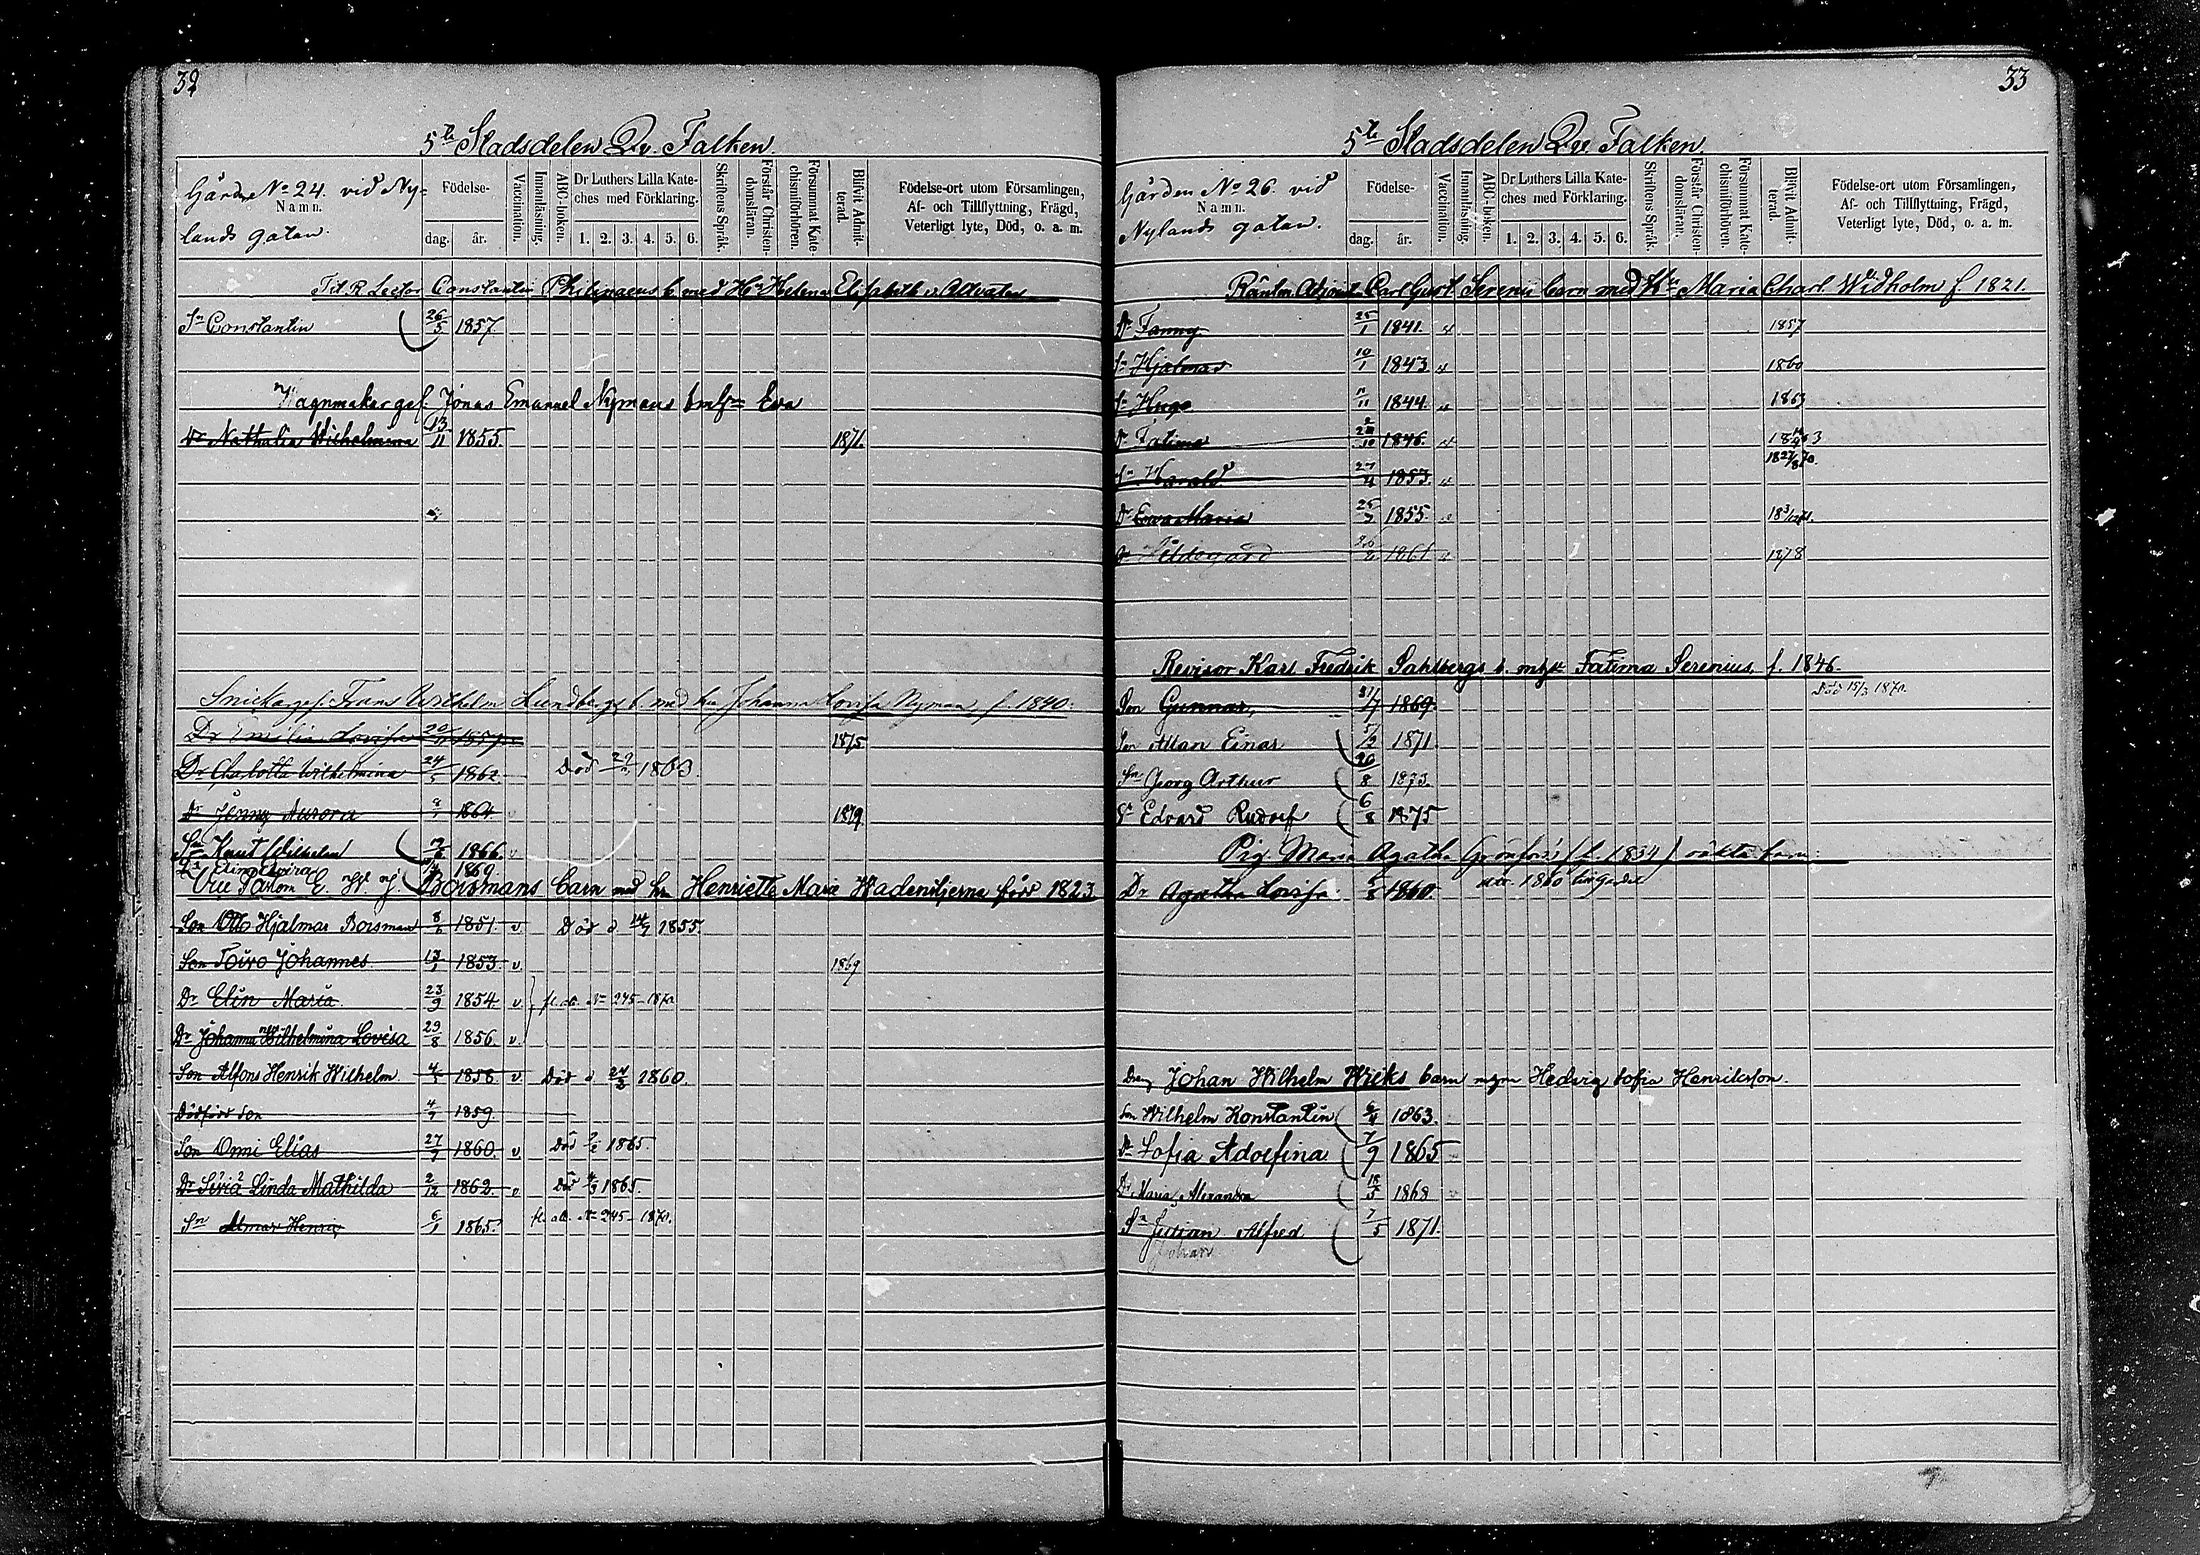 32
5te Stadsdelen Qv. Falken.
Gården No 24. vid Ny=
lands gatan.
Namn.
Födelse-
dag. år.
Vaccination.
Innanläsning.
ABC-boken.
Dr Luthers Lilla Kate-
ches med Förklaring.
1. 2. 3. 4. 5. 6.
Skriftens Språk.
Förstår Christen-
domsläran.
Försummat Kate-
chismiförhören.
Blifvit Admit-
terad.
Födelse-ort utom Församlingen,
Af- och Tillflyttning, Frägd,
Veterligt lyte, Död, o. a. m.
Tit. R. Lector Constantin b. med Hu Helena Elisabeth
Sn Constantin 26/5 1857.
Wagnmakar gef. Jonas Emanuel Nymans Eva
Dr Nathalia Wilhelmina 13/11 1855. 1871.
Snickargef. Frans Wilhelm Lundbergs b. med hu Johanna Lovisa Nyman f. 1840.
Dr Emilia Lovisa 1875
Dr Chalotta Wilhelmina 24/5 1862 Död 1863.
Dr Jenny Aurora 1864 1879
Sn Knut Wilhelm 1866. v
Dr Elin Elvira 1869
Vice Pastorn E. W. Boismans barn med hu Henriette Maria Wadenstjerna född 1823
Son Otto Hjalmar Boisman 8/6 1851 v Död d 14/7 1855.
Son Toivo Johannes 13/1 1853. v. 1869
Dr Elin Maria 23/9 1854. v. fl. ab. No 245-1870
Dr Johanna Wilhelmina Lovisa 29/8 1856 v.
Son Alfons Henrik Wilhelm 1858 v Död d 24/3 1860.
Dödfödd Son 4/7 1859
Son Onni Elias 27/7 1860 v. Död 1865.
Dr Siviä Linda Mathilda 2/12 1862. v Död 1865.
Sn Almar Henrik 6/1 1865. fl. ab. No 245-1870.
33
5te Stadsdelen Qv. Falken.
Gården No 26. vid
Nylands gatan.
Namn.
Födelse-
dag. år.
Vaccination.
Innanläsning.
ABC-boken.
Dr Luthers Lilla Kate-
ches med Förklaring.
1. 2. 3. 4. 5. 6.
Skriftens Språk.
Förstår Christen-
domsläran.
Försummat Kate-
chismiförhören.
Blifvit Admit-
terad.
Födelse-ort utom Församlingen,
Af- och Tillflyttning, Frägd,
Veterligt lyte, Död, o. a. m.
Carl Gust. Serenii barn med Hu Maria Charl. Widholm f 1821.
Dr Fanny 25/1 1841. v 1857
Sn Hjalmar 10/1 1843 v 1860
Sn Hugo 11/11 1844. v 1863
Dr Fatima 1846. v
Sn Harald 27/4 1853. v 18 27/8 70.
Dr Eva Maria 1855.
Dr Hildegard 1861 1878
Revisor Karl Fredrik Sahlbergs b. mhu Fatima Serenius f. 1846.
Son Gunnar, 31/7 1869. Död 15/3 1870.
Son Allan Einar 5/12 1871.
Sn Georg Arthur 20/8 1873.
Sn Edvard Rudolf 6/8 1875
Pig. Maria Agatha Grönfors's (f. 1834) oäkta barn.
Dr Agatha Lovisa 1860.
Dreng Johan Wilhelm Wieks barn Hedvig Sofia Henriksson.
Son Wilhelm Konstantin 6/4 1863.
Dr Sofia Adolfina 7/9 1865
Dr Maria Alexandra 18/5 1868
Sn Julian Alfred 7/5 1871.
Johan